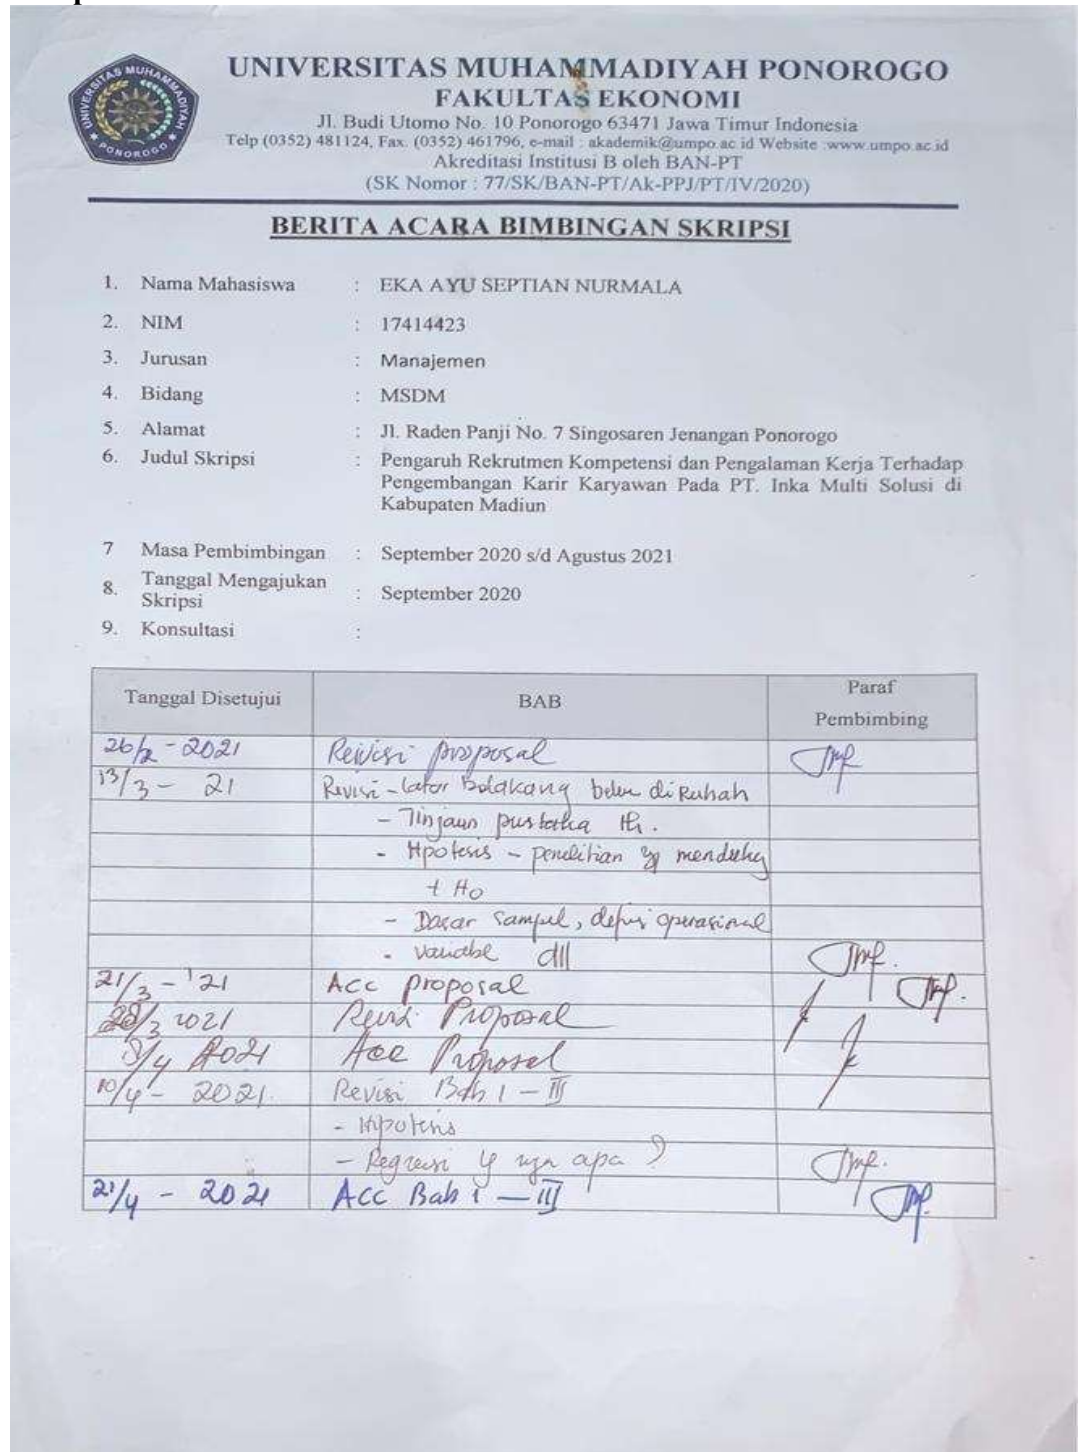 UNIVERSITAS MUHAMMADIYAH PONOROGO
UNIVERSITAS MUHAMMADIYAH PONOROGO
FAKULTAS EKONOMI
Jl. Budi Utomo No. 10 Ponorogo 63471 Jawa Timur Indonesia
Telp (0352) 481124, Fax. (0352) 461796, e-mail : akademik@umpo.ac.id Website :www.umpo.ac.id
Akreditasi Institusi B oleh BAN-PT
(SK Nomor : 77/SK/BAN-PT/Ak-PPJ/PT/IV/2020)
BERITA ACARA BIMBINGAN SKRIPSI
1. Nama Mahasiswa : EKA AYU SEPTIAN NURMALA
2. NIM : 17414423
3. Jurusan : Manajemen
4. Bidang : MSDM
5. Alamat : Jl. Raden Panji No. 7 Singosaren Jenangan Ponorogo
6. Judul Skripsi : Pengaruh Rekrutmen Kompetensi dan Pengalaman Kerja Terhadap
Pengembangan Karir Karyawan Pada PT. Inka Multi Solusi di
Kabupaten Madiun
7 Masa Pembimbingan : September 2020 s/d Agustus 2021
8. Tanggal Mengajukan
Skripsi : September 2020
9. Konsultasi :
Tanggal Disetujui BAB Paraf
Pembimbing
26/2 - 2021 Revisi proposal
13/3 - 21 Revisi - latar belakang belum dirubah
- Tinjaun pustaka
- Hipotesis - penelitian yg mendukung
+ Ho
- Dasar sampel, definisi operasional
- variabel dll
21/3 - '21 Acc proposal
28/3 2021 Revisi Proposal
8/4 2021 Acc Proposal
10/4 - 2021. Revisi Bab I - III
- Hipotesis
- Regresi y nya apa ?
21/4 - 2021 Acc Bab I - III